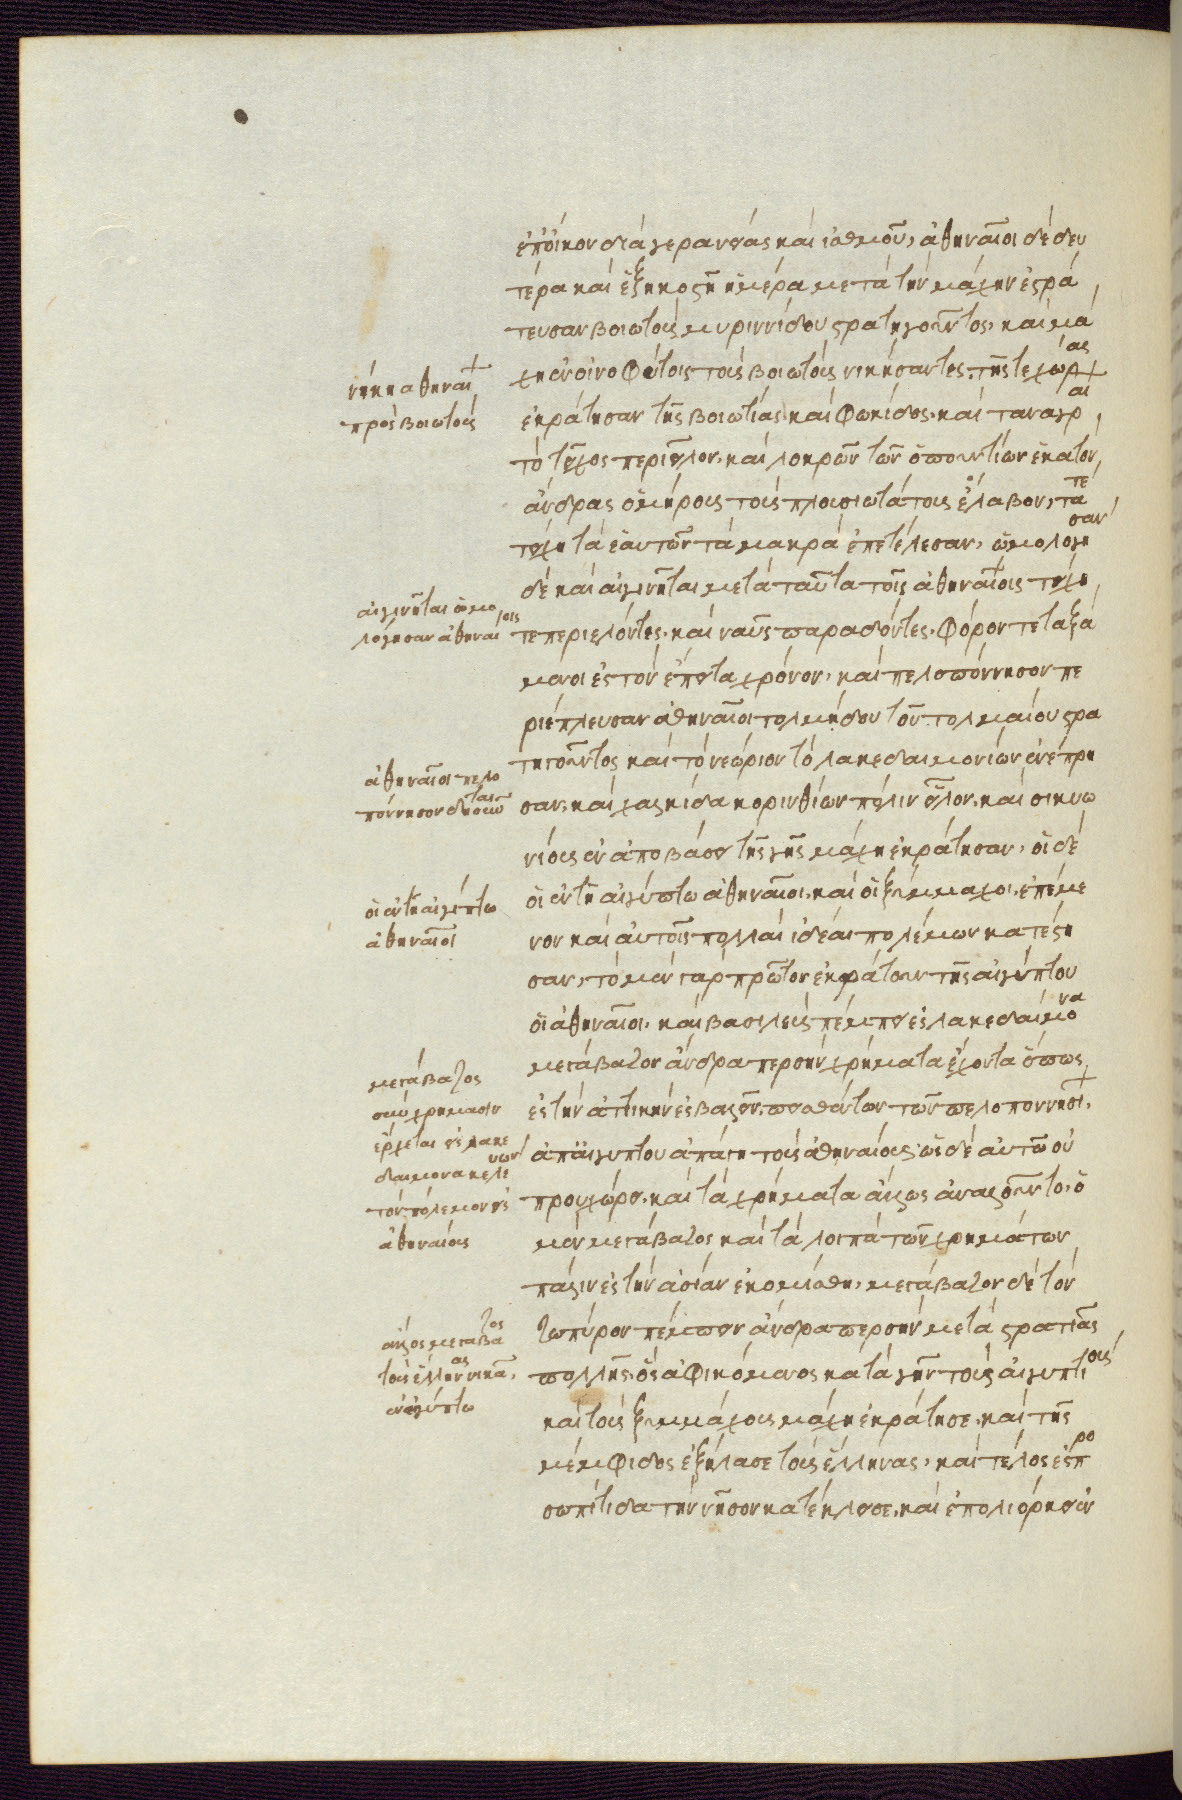 ἐπ' οἴκου διὰ γερανείας καὶ ἰσθμοῦ, ἀθηναῖοι δὲ δευ
τέρα καὶ ἑξηκοστῇ ἡμέρα μετὰ τὴν μάχην ἐστρά
τευσαν βοιωτοὺς μυρωνίδου στρατηγοῦντος, καὶ μά
χη ἐν οἰνοφύτοις τοὺς βοιωτοὺς νικήσαντες. τῆς τε χώρας
ἐκράτησαν τῆς βοιωτίας καὶ φωκίδος. καὶ ταναγραί
τὸ τεῖχος περιεῖλον. καὶ λοκρῶν τῶν ὀπουντίων ἑκατὸν
ἄνδρας ὁμήρους τοὺς πλουσιωτάτους ἔλαβον, τά τε
τείχη τὰ ἑαυτῶν τὰ μακρὰ ἐπετέλεσαν, ὡμολόγησαν
δὲ καὶ αἰγινῆται μετὰ ταῦτα τοῖς ἀθηναίοις τείχη
τε περιελόντες. καὶ ναῦς παραδόντες. φόρον τε ταξά
μενοι ἐς τὸν ἔπειτα χρόνον, καὶ πελοπόννησον πε
ριέπλευσαν ἀθηναῖοι τολμήδου τοῦ τολμαίου στρα
τηγοῦντος καὶ τὸ νεώριον τὸ λακεδαιμονίων ἐνέπρη
σαν, καὶ χαλκίδα κορινθίων πόλιν εἷλον. καὶ σικυω
νίους ἐν ἀποβάσει τῆς γῆς μάχη ἐκράτησαν, οἱ δὲ
οἱ ἐν τῇ αἰγύπτω ἀθηναῖοι. καὶ οἱ ξύμμαχοι. ἐπέμε
νον καὶ αὐτοῖς πολλαὶ ἰδέαι πολέμων κατέστη
σαν, τὸ μὲν γὰρ πρῶτον ἐκράτουν τῆς αἰγύπτου
οἱ ἀθηναῖοι. καὶ βασιλεὺς πέμπει ἐς λακεδαίμονα
μετάβαζον ἄνδρα πέρσην χρήματα ἔχοντα ὅπως
ἐς τὴν ἀττικὴν ἐσβαλεῖν. πεισθέντων τῶν πελοποννησί.
ἀπ' αἰγύπτου ἀπάγη τοὺς ἀθηναίους, ὡς δὲ αὐτῶ οὐ
προυχώρει. καὶ τὰ χρήματα ἄλλως ἀναλοῦντο, ὁ
μὲν μετάβαζος καὶ τὰ λοιπὰ τῶν χρημάτων
πάλιν ἐς τὴν ἀσίαν ἐκομίσθη, μετάβαζον δὲ τὸν
ζωπύρου πέμπει ἄνδρα πέρσην μετὰ στρατιᾶς
πολλῆς. ὃς ἀφικόμενος κατὰ γῆν τούς αἰγυπτίους
καὶ τοὺς ξυμμάχους μάχη ἐκράτησε. καὶ τῆς
μέμφιδος ἐξήλασε τοὺς ἕλληνας, καὶ τέλος ἐς προ
σωπίτιδα τὴν νῆσον κατέκλεισε, καὶ ἐπολιόρκησεν
νίκη ἀθηναί
πρὸς βοιωτούς
αἰγινῆται ὡμο
λόγησαν ἀθηναίοις
ἀθηναῖοι πελο
πόννησον
οἱ ἐν τῇ αἰγύπτω
ἀθηναῖοι
μετάβαζος
σὺν χρήμασιν
ἔρχεται ἐς λακε
δαίμονα κελεύων
τὸν πόλεμον ἐς
ἀθηναίους
ἄλλος μετάβαζος
τοὺς ἕλληνας νικᾶ.
ἐν αἰγύπτω